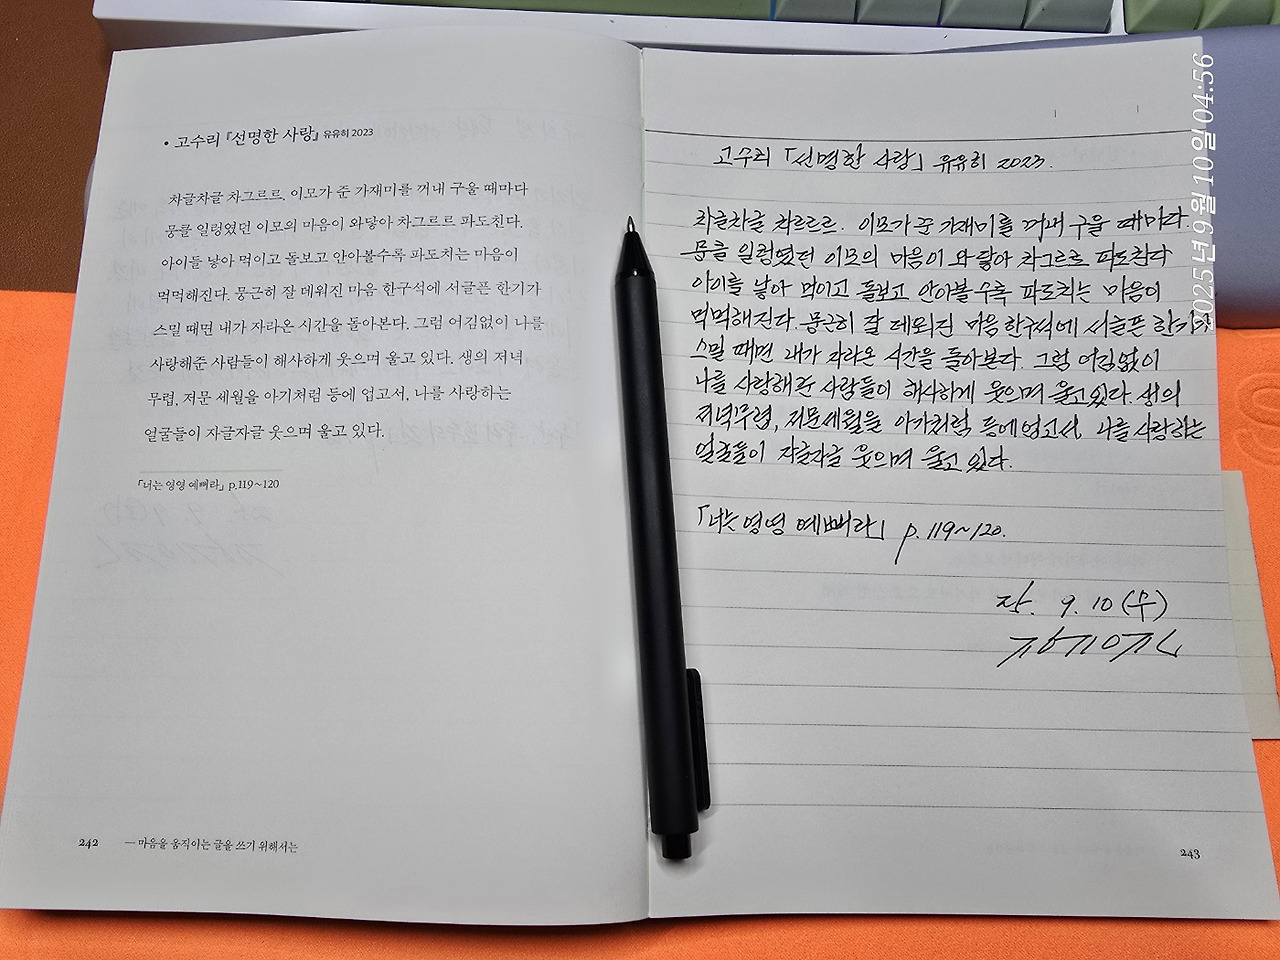 • 고수리 『선명한 사랑』 유유히 2023
차글차글 차그르르. 이모가 준 가재미를 꺼내 구울 때마다
뭉클 일렁였던 이모의 마음이 와닿아 차그르르 파도친다.
아이들 낳아 먹이고 돌보고 안아볼수록 파도치는 마음이
먹먹해진다. 뭉근히 잘 데워진 마음 한구석에 서글픈 한기가
스밀 때면 내가 자라온 시간을 돌아본다. 그럼 어김없이 나를
사랑해준 사람들이 해사하게 웃으며 울고 있다. 생의 저녁
무렵, 저문 세월을 아기처럼 등에 업고서, 나를 사랑하는
얼굴들이 자글자글 웃으며 울고 있다.
「너는 영영 예뻐라」 p.119~120
242 — 마음을 움직이는 글을 쓰기 위해서는
고수리 「선명한 사랑」 유유히 2023.
차글차글 차르르르. 이모가 준 가재미를 꺼내 구울 때마다.
뭉클 일렁였던 이모의 마음이 와닿아 차그르르 파도친다
아이를 낳아 먹이고 돌보고 안아볼수록 파도치는 마음이
먹먹해진다. 뭉근히 잘 데워진 마음한구석에 서글픈 한기가
스밀 때면 내가 자라온 시간을 돌아본다. 그럼 어김없이
나를 사랑해준 사람들이 해사하게 웃으며 울고있다. 생의
저녁무렵, 저문세월을 아기처럼 등에업고서, 나를 사랑하는
얼굴들이 자글자글 웃으며 울고 있다.
「너는 영영 예뻐라」 p.119~120.
9. 10 (수)
243
2025년 9월 10일 04:56